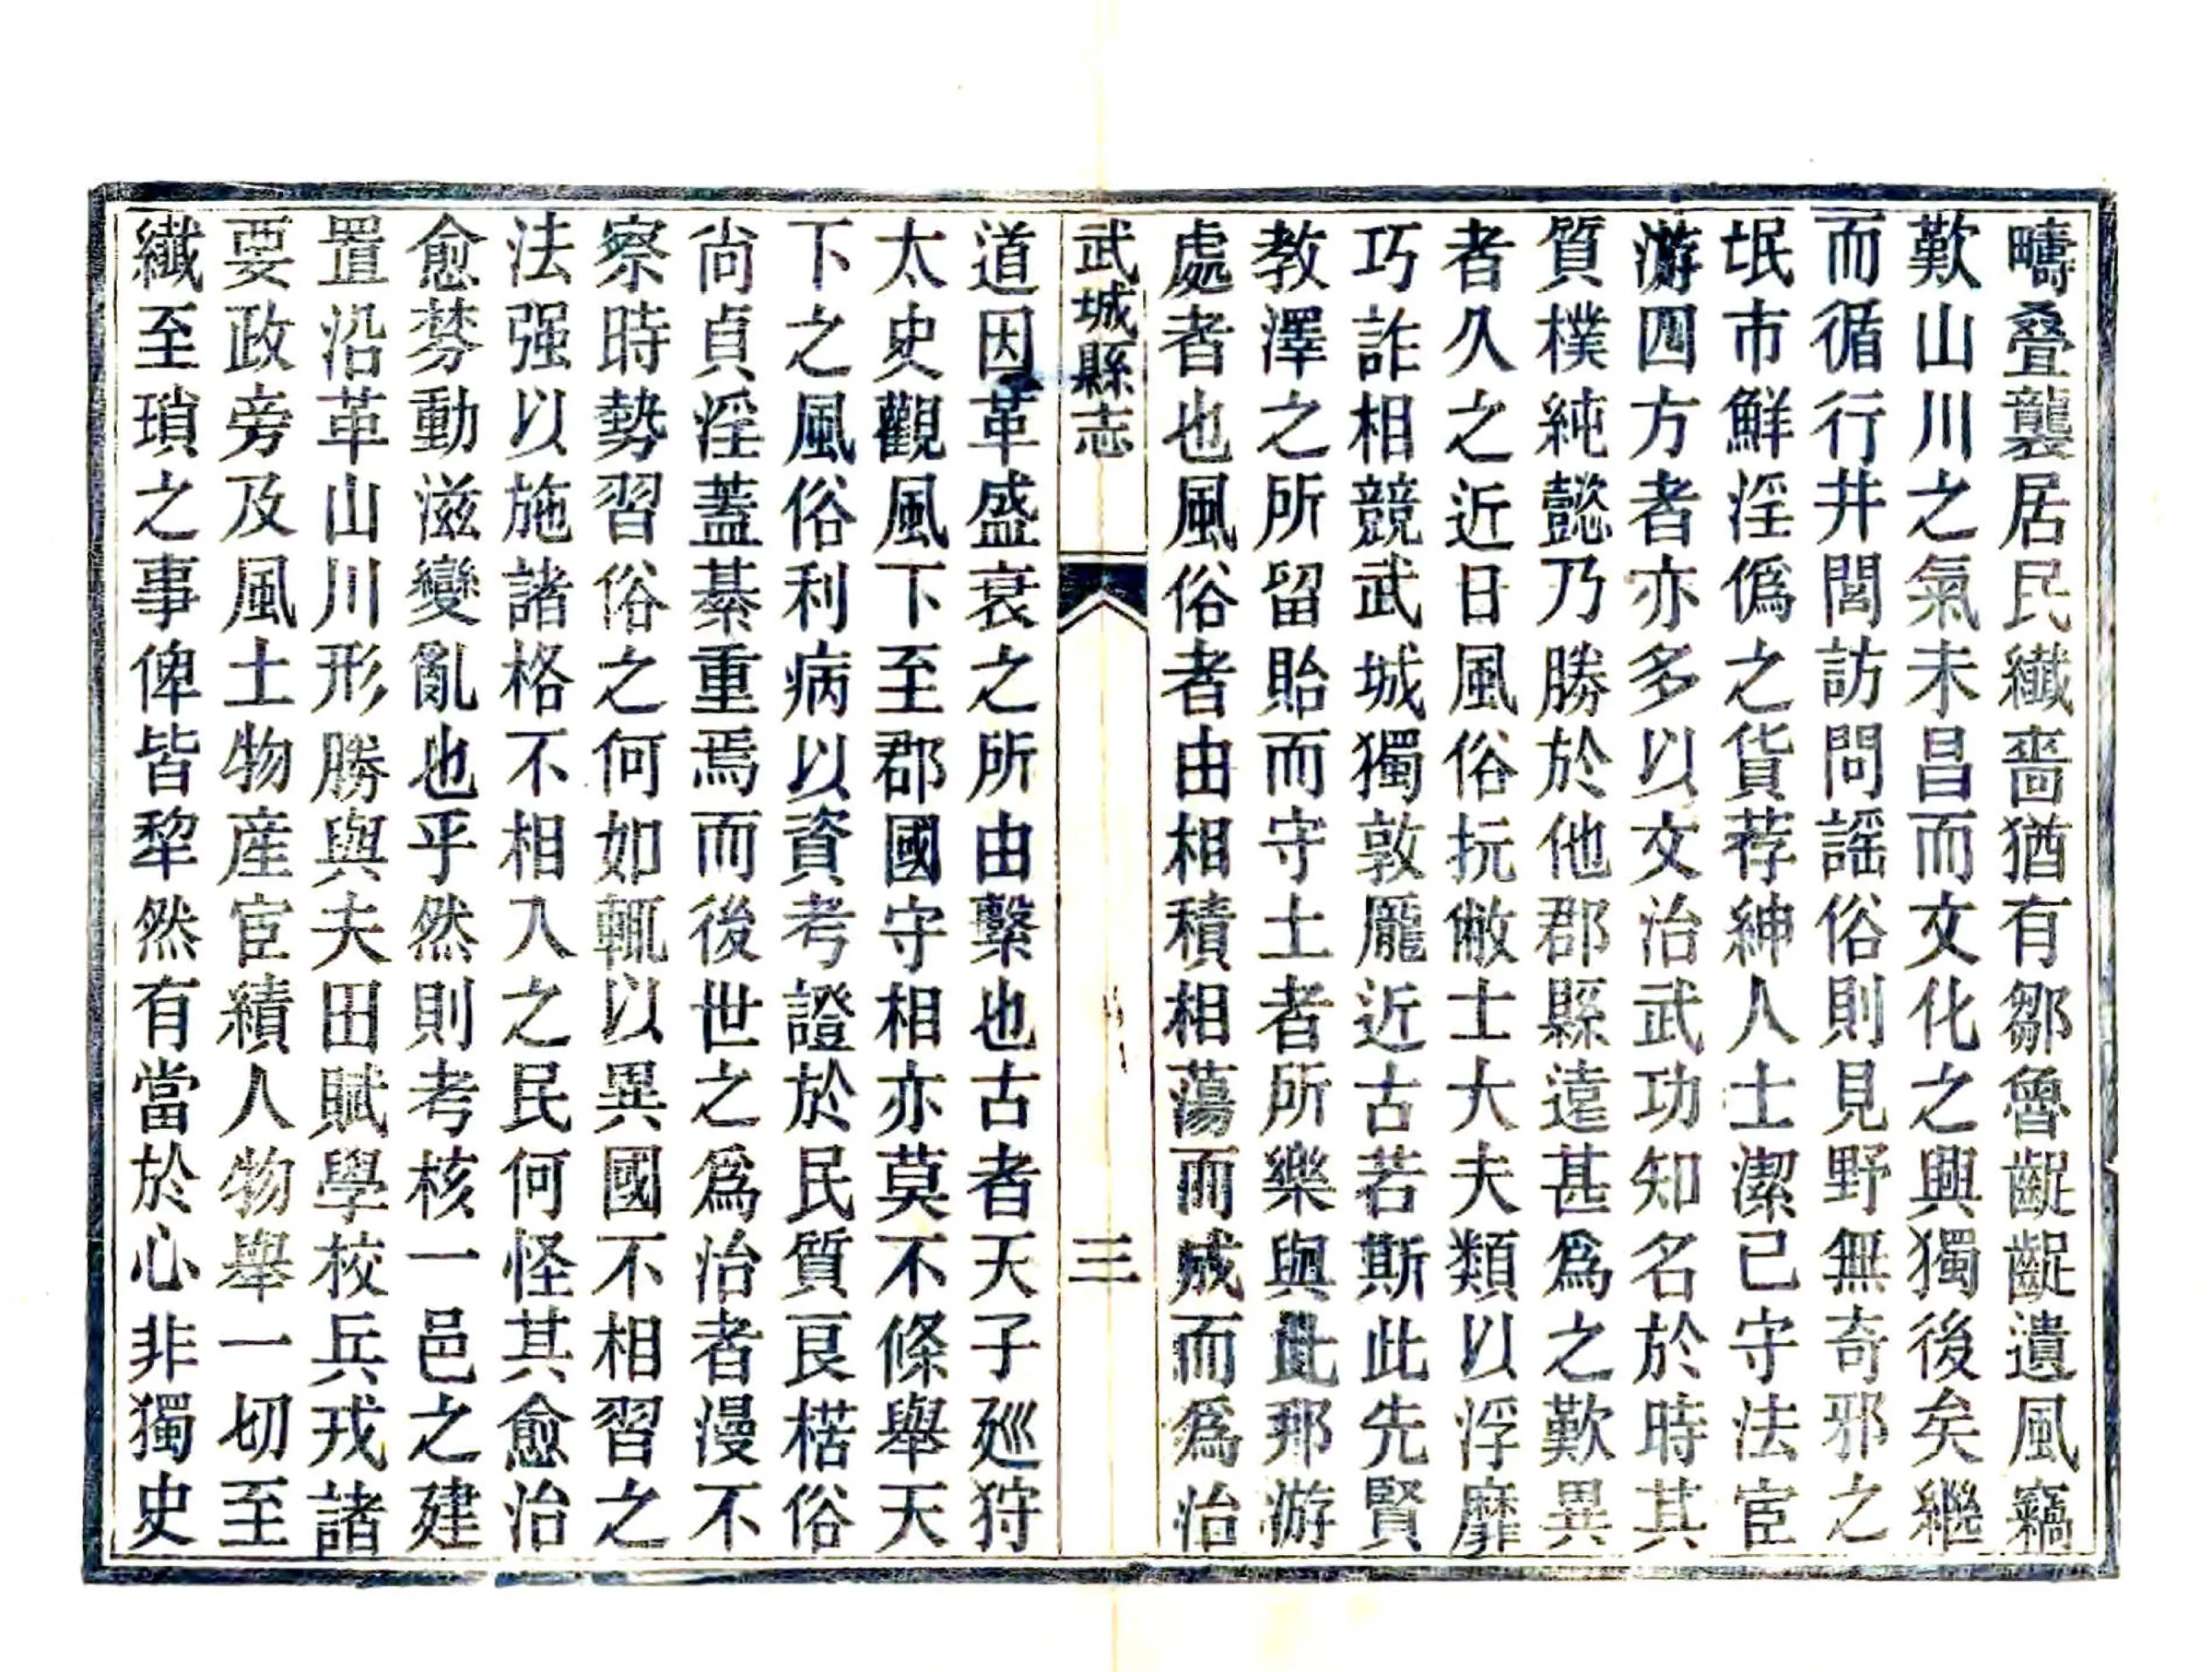 疇叠襲居民纎嗇猶有鄒魯齪齪遺風竊
歎山川之氣未昌而文化之興獨後矣繼
而循行井閭訪問謡俗則見野無奇邪之
氓市鮮淫僞之貨荐紳人士潔己守法宦
游四方者亦多以文治武功知名於時其
質樸純懿乃勝於他郡縣遠甚爲之歎異
者久之近日風俗抏敝士大夫類以浮靡
巧詐相競武城獨敦龎近古若斯此先賢
教澤之所留貽而守土者所樂與此邦游
處者也風俗者由相積相蕩而成而爲治
武城縣志
三
道因革盛衰之所由繫也古者天子廵狩
太史觀風下至郡國守相亦莫不條舉天
下之風俗利病以資考證於民質良楛俗
尚貞淫蓋綦重焉而後世之爲治者漫不
察時勢習俗之何如輒以異國不相習之
法强以施諸格不相入之民何怪其愈治
愈棼動滋變亂也乎然則考核一邑之建
置沿革山川形勝與夫田賦學校兵戎諸
要政旁及風土物産宦績人物舉一切至
纎至瑣之事俾皆犂然有當於心非獨史